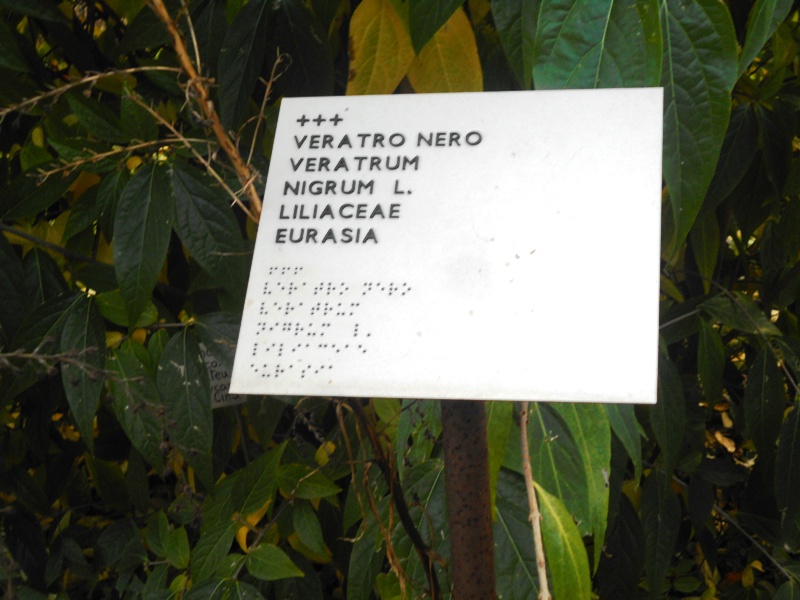 +++
VERATRO NERO
VERATRUM
NIGRUM L.
LILIACEAE
EURASIA
⠖⠖⠖
⠧⠑⠗⠁⠞⠗⠕ ⠝⠑⠗⠕
⠧⠑⠗⠁⠞⠗⠥⠍
⠝⠊⠛⠗⠥⠍ ⠇⠲
⠇⠊⠇⠊⠁⠉⠑⠁⠑
⠑⠥⠗⠁⠎⠊⠁